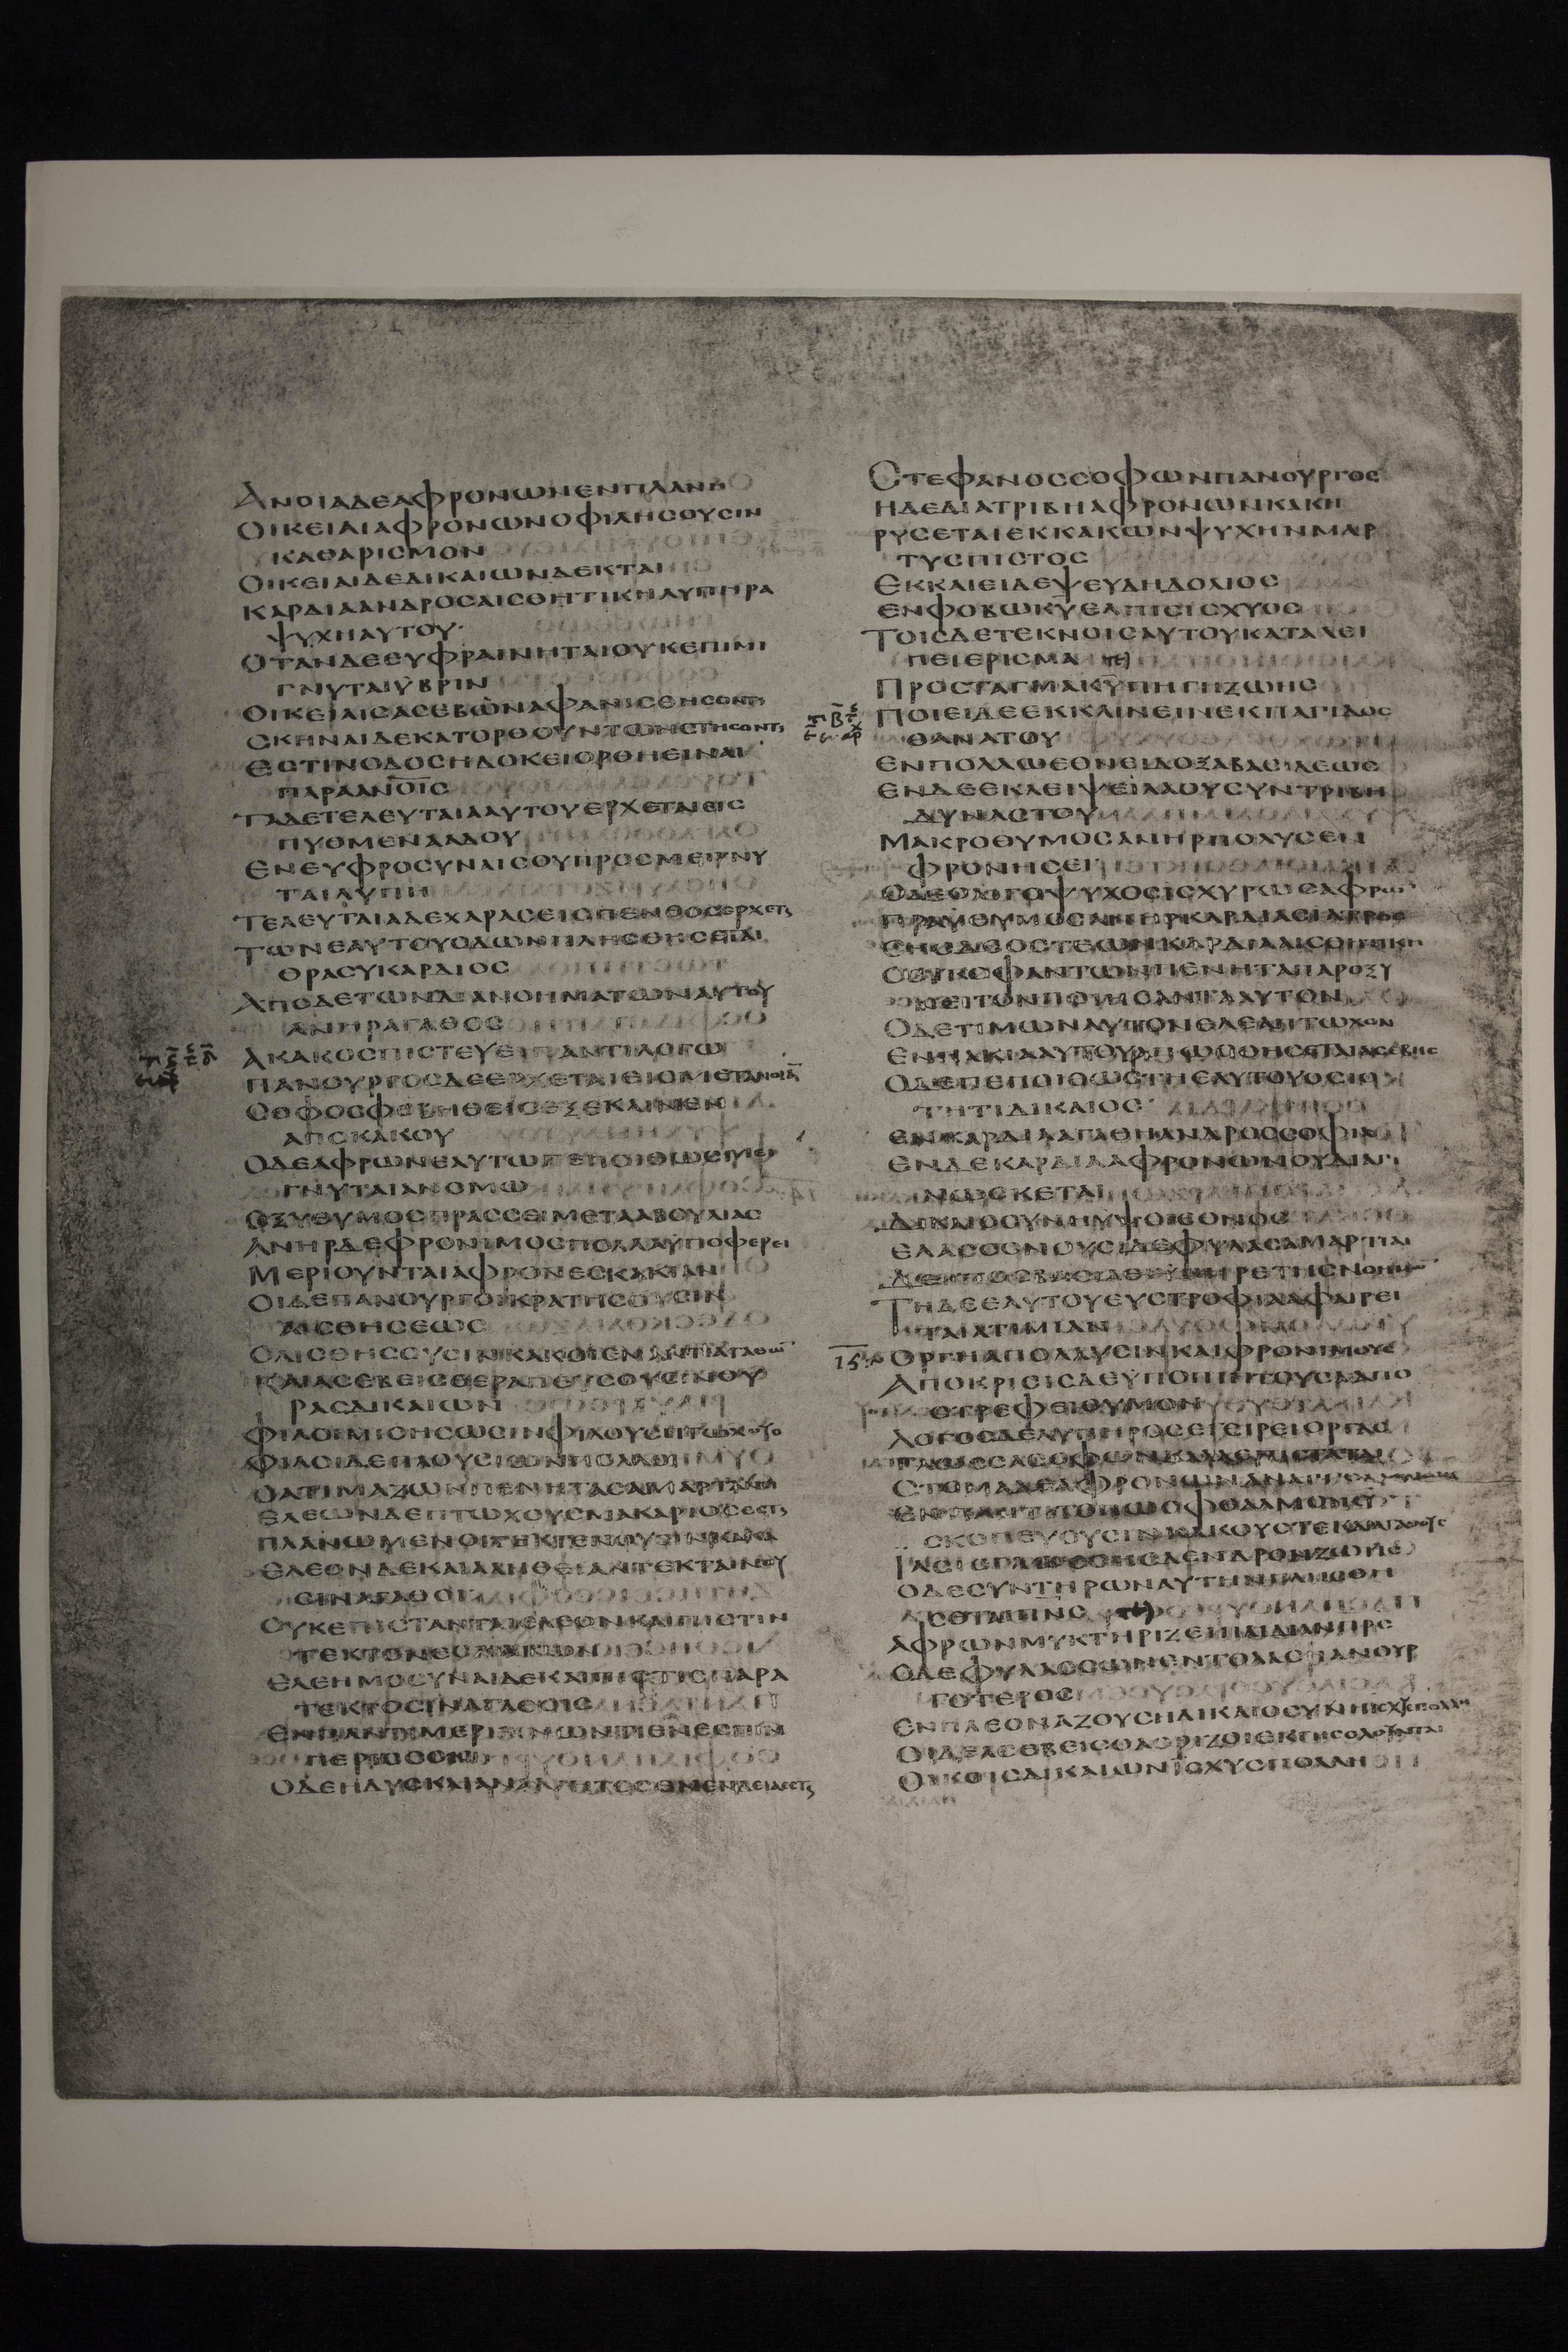 ΑΝΟΙΑΔΕΑΦΡΟΝΩΝΕΝΠΛΑΝΗ
ΟΙΚΕΙΑΙΑΦΡΟΝΩΝΟΦΙΛΗΣΟΥΣΙΝ
ΚΑΘΑΡΙΣΜΟΝ
ΟΙΚΕΙΑΙΔΕΔΙΚΑΙΩΝΔΕΚΤΑΙ
ΚΑΡΔΙΑΑΝΔΡΟΣΑΙΣΘΗΤΙΚΗΛΥΠΗΡΑ
ΨΥΧΗΑΥΤΟΥ·
ΟΤΑΝΔΕΕΥΦΡΑΙΝΗΤΑΙΟΥΚΕΠΙΜΙ
ΓΝΥΤΑΙΥΒΡΙΝ
ΟΙΚΕΙΑΙΣΑΣΕΒΩΝΑΦΑΝΙΣΘΗΣΟΝΤϗ
ΣΚΗΝΑΙΔΕΚΑΤΟΡΘΟΥΝΤΩΝΣΤΗΣΟΝΤϗ
ΕΣΤΙΝΟΔΟΣΗΔΟΚΕΙΟΡΘΗΕΙΝΑΙ
ΠΑΡΑΑΝΟΙΣ
ΤΑΔΕΤΕΛΕΥΤΑΙΑΑΥΤΟΥΕΡΧΕΤΑΙΕΙΣ
ΠΥΘΜΕΝΑΑΔΟΥ
ΕΝΕΥΦΡΟΣΥΝΑΙΣΟΥΠΡΟΣΜΕΙΓΝΥ
ΤΑΙΛΥΠΗ
ΤΕΛΕΥΤΑΙΑΔΕΧΑΡΑΣΕΙΣΠΕΝΘΟΣΕΡΧΕΤϗ
ΤΩΝΕΑΥΤΟΥΟΔΩΝΠΛΗΣΘΗΣΕΤΑΙ
ΘΡΑΣΥΚΑΡΔΙΟΣ
ΑΠΟΔΕΤΩΝΔΙΑΝΟΗΜΑΤΩΝΑΥΤΟΥ
ΑΝΗΡΑΓΑΘΟΣ
ΑΚΑΚΟΣΠΙΣΤΕΥΕΙΠΑΝΤΙΛΟΓΩ
ΠΑΝΟΥΡΓΟΣΔΕΕΡΧΕΤΑΙΕΙΣΜΕΤΑΝΟΙΑ̅
ΣΟΦΟΣΦΟΒΗΘΕΙΣΕΞΕΚΛΙΝΕΝ
ΑΠΟΚΑΚΟΥ
ΟΔΕΑΦΡΩΝΕΑΥΤΩΠΕΠΟΙΘΩΣΜΙΓ
ΓΝΥΤΑΙΑΝΟΜΩ
ΟΞΥΘΥΜΟΣΠΡΑΣΣΕΙΜΕΤΑΑΒΟΥΛΙΑΣ
ΑΝΗΡΔΕΦΡΟΝΙΜΟΣΠΟΛΛΑΥΠΟΦΕΡΕΙ
ΜΕΡΙΟΥΝΤΑΙΑΦΡΟΝΕΣΚΑΚΙΑΝ
ΟΙΔΕΠΑΝΟΥΡΓΟΙΚΡΑΤΗΣΟΥΣΙΝ
ΑΙΣΘΗΣΕΩΣ
ΟΛΙΣΘΗΣΟΥΣΙΝΚΑΚΟΙΕΝΑΝΤΙΑΓΑΘΩ̅
ΚΑΙΑΣΕΒΕΙΣΘΕΡΑΠΕΥΣΟΥΣΙΝΘΥ
ΡΑΣΔΙΚΑΙΩΝ
ΦΙΛΟΙΜΙΣΗΣΩΣΙΝΦΙΛΟΥΣΠΤΩΧΟΥΣ
ΦΙΛΟΙΔΕΠΛΟΥΣΙΩΝΠΟΛΛΟΙ
ΟΑΤΙΜΑΖΩΝΠΕΝΗΤΑΣΑΜΑΡΤΑΝΕΙ
ΕΛΕΩΝΔΕΠΤΩΧΟΥΣΜΑΚΑΡΙΟΣΕΣΤϗ
ΠΛΑΝΩΜΕΝΟΙΤΕΚΤΕΝΟΥΣΙΝΚΑΚΑ
ΕΛΕΟΝΔΕΚΑΙΑΛΗΘΕΙΑΝΤΕΚΤΑΙΝΟΥ
ΣΙΝΑΓΑΘΟΙ
ΟΥΚΕΠΙΣΤΑΝΤΑΙΕΛΕΟΝΚΑΙΠΙΣΤΙΝ
ΤΕΚΤΟΝΕΣΚΑΚΩΝ
ΕΛΕΗΜΟΣΥΝΑΙΔΕΚΑΙΠΙΣΤΙΣΠΑΡΑ
ΤΕΚΤΟΣΙΝΑΓΑΘΟΙΣ
ΕΝΠΑΝΤΙΜΕΡΙΜΝΩΝΤΙΕΝΕΣΤΙΝ
ΠΕΡΙΣΣΟΝ
ΟΔΕΗΔΥΣΚΑΙΑΝΑΛΓΗΤΟΣΕΝΕΝΔΕΙΑΕΣΤϗ
ΣΤΕΦΑΝΟΣΣΟΦΩΝΠΑΝΟΥΡΓΟΣ
ΗΔΕΔΙΑΤΡΙΒΗΑΦΡΟΝΩΝΚΑΚΗ
ΡΥΣΕΤΑΙΕΚΚΑΚΩΝΨΥΧΗΝΜΑΡ
ΤΥΣΠΙΣΤΟΣ
ΕΚΚΑΙΕΙΔΕΨΕΥΔΗΔΟΛΙΟΣ
ΕΝΦΟΒΩΚΥΕΛΠΙΣΙΣΧΥΟΣ
ΤΟΙΣΔΕΤΕΚΝΟΙΣΑΥΤΟΥΚΑΤΑΛΕΙ
ΠΕΙΕΡΙΣΜΑ
ΠΡΟΣΤΑΓΜΑΚΥΠΗΓΗΖΩΗΣ
ΠΟΙΕΙΔΕΕΚΚΛΙΝΕΙΝΕΚΠΑΓΙΔΟΣ
ΘΑΝΑΤΟΥ
ΕΝΠΟΛΛΩΕΘΝΕΙΔΟΞΑΒΑΣΙΛΕΩΣ
ΕΝΔΕΕΚΛΕΙΨΕΙΛΑΟΥΣΥΝΤΡΙΒΗ
ΔΥΝΑΣΤΟΥ
ΜΑΚΡΟΘΥΜΟΣΑΝΗΡΠΟΛΥΣΕΝ
ΦΡΟΝΗΣΕΙ
ΟΔΕΟΛΙΓΟΨΥΧΟΣΙΣΧΥΡΩΣΑΦΡΩ̅
ΠΡΑΥΘΥΜΟΣΑΝΗΡΚΑΡΔΙΑΣΙΑΤΡΟΣ
ΣΗΣΔΕΟΣΤΕΩΝΚΑΡΔΙΑΑΙΣΘΗΤΙΚΗ
ΟΣΥΚΟΦΑΝΤΩΝΠΕΝΗΤΑΠΑΡΟΞΥ
ΝΕΙΤΟΝΠΟΙΗΣΑΝΤΑΑΥΤΟΝ
ΟΔΕΤΙΜΩΝΑΥΤΟΝΕΛΕΑΠΤΩΧΟΝ
ΕΝΚΑΚΙΑΑΥΤΟΥΑΠΩΣΘΗΣΕΤΑΙΑΣΕΒΗΣ
ΟΔΕΠΕΠΟΙΘΩΣΤΗΕΑΥΤΟΥΟΣΙΟ
ΤΗΤΙΔΙΚΑΙΟΣ
ΕΝΚΑΡΔΙΑΑΓΑΘΗΑΝΔΡΟΣΣΟΦΙΑ
ΕΝΔΕΚΑΡΔΙΑΑΦΡΟΝΩΝΟΥΔΙΑΓΙ
ΝΩΣΚΕΤΑΙ
ΔΙΚΑΙΟΣΥΝΗΥΨΟΙΕΘΝΟΣ
ΕΛΑΣΣΟΝΟΥΣΙΔΕΦΥΛΑΣΑΜΑΡΤΙΑΙ
ΔΕΚΤΟΣΒΑΣΙΛΕΙΥΠΗΡΕΤΗΣΝΟΗΜΩ̅
ΤΗΔΕΕΑΥΤΟΥΕΥΣΤΡΟΦΙΑΑΦΑΙΡΕΙ
ΤΑΙΑΤΙΜΙΑΝ
ΟΡΓΗΑΠΟΛΛΥΣΙΝΚΑΙΦΡΟΝΙΜΟΥΣ
ΑΠΟΚΡΙΣΙΣΔΕΥΠΟΠΙΠΤΟΥΣΑΑΠΟ
ΣΤΡΕΦΕΙΘΥΜΟΝ
ΛΟΓΟΣΔΕΛΥΠΗΡΟΣΕΓΕΙΡΕΙΟΡΓΑΣ
ΓΛΩΣΣΑΣΟΦΩΝΚΑΛΑΕΠΙΣΤΑΤΑΙ
ΣΤΟΜΑΔΕΑΦΡΟΝΩΝΑΝΑΓΓΕΛΛΕΙ
ΕΝΠΑΝΤΙΤΟΠΩΟΦΘΑΛΜΟΙΚΥ
ΣΚΟΠΕΥΟΥΣΙΝΚΑΚΟΥΣΤΕΚΑΙΑΓΑΘΟΥΣ
ΙΑΣΙΣΓΛΩΣΣΗΣΔΕΝΔΡΟΝΖΩΗΣ
ΟΔΕΣΥΝΤΗΡΩΝΑΥΤΗΝΠΛΗΣΘΗ
ΣΕΤΑΙΠΝΣ
ΑΦΡΩΝΜΥΚΤΗΡΙΖΕΙΠΑΙΔΙΑΝΠΡΣ
ΟΔΕΦΥΛΑΣΣΩΝΕΝΤΟΛΑΣΠΑΝΟΥΡ
ΓΟΤΕΡΟΣ
ΕΝΠΛΕΟΝΑΖΟΥΣΗΔΙΚΑΙΟΣΥΝΗΙΣΧΥΣΠΟΛΛΗ
ΟΙΔΕΑΣΕΒΕΙΣΟΛΟΡΙΖΟΙΕΚΓΗΣΟΛΟΥΝΤΑΙ
ΟΙΚΟΙΣΔΙΚΑΙΩΝΙΣΧΥΣΠΟΛΛΗ